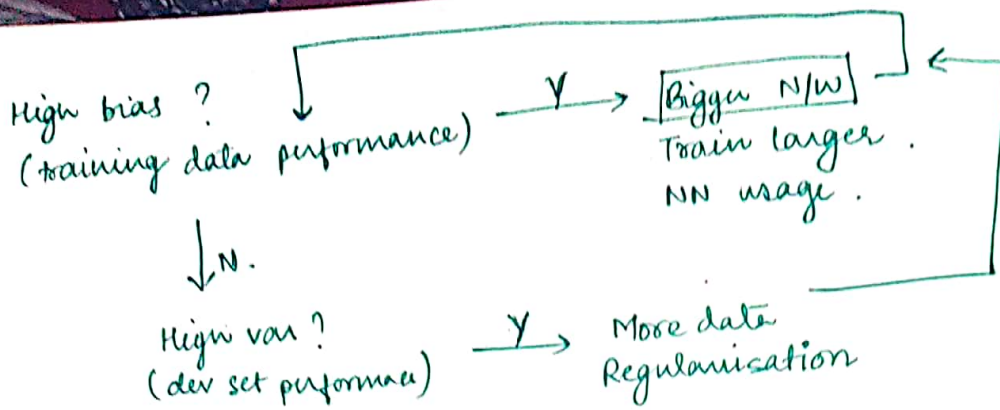 High bias ?
(training data performance)
Y
Bigger N/W
Train larger .
NN usage .
N.
High var ?
(dev set performance)
Y
More data
Regularisation